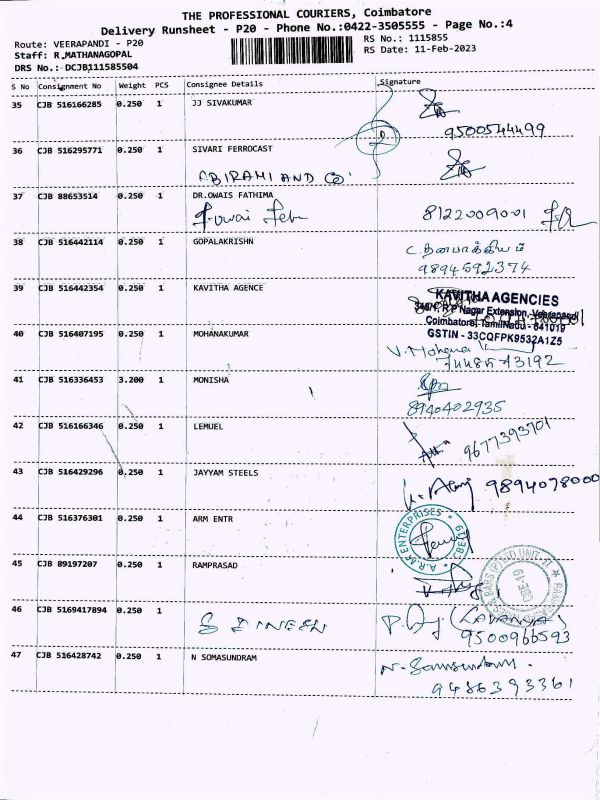 THE PROFESSIONAL COURIERS, Coimbatore
Delivery Runsheet - P20 - Phone No.:0422-3505555 - Page No.:4
Route: VEERAPANDI - P20
RS No.: 1115855
Staff: R.MATHANAGOPAL
RS Date: 11-Feb-2023
DRS No.: DCJB111585504
S No Consignment No Weight PCS Consignee Details Signature
35 CJB 516166285 0.250 1 JJ SIVAKUMAR
9500544499
36 CJB 516295771 0.250 1 SIVARI FERROCAST
ABIRAMI AND CO
37 CJB 88653514 0.250 1 DR.OWAIS FATHIMA
8122009001
38 CJB 516442114 0.250 1 GOPALAKRISHN
C. தனபாக்கியம்
9894592374
39 CJB 516442354 0.250 1 KAVITHA AGENCE
KAVITHA AGENCIES
R P Nagar Extension, Veerapandi
Coimbatore, TamilNadu - 641019
GSTIN - 33CQFPK9532A1Z5
40 CJB 516407195 0.250 1 MOHANAKUMAR
V. Mohana
7448573192
41 CJB 516336453 3.200 1 MONISHA
8940402935
42 CJB 516166346 0.250 1 LEMUEL
9677393701
43 CJB 516429296 0.250 1 JAYYAM STEELS
9894078000
44 CJB 516376301 0.250 1 ARM ENTR
A.R.M ENTERPRISES
45 CJB 89197207 0.250 1 RAMPRASAD
CBE-19
46 CJB 5169417894 0.250 1
S DINESH
(LAVANYA)
9500966593
47 CJB 516428742 0.250 1 N SOMASUNDRAM
N. Somsundam.
9486393361